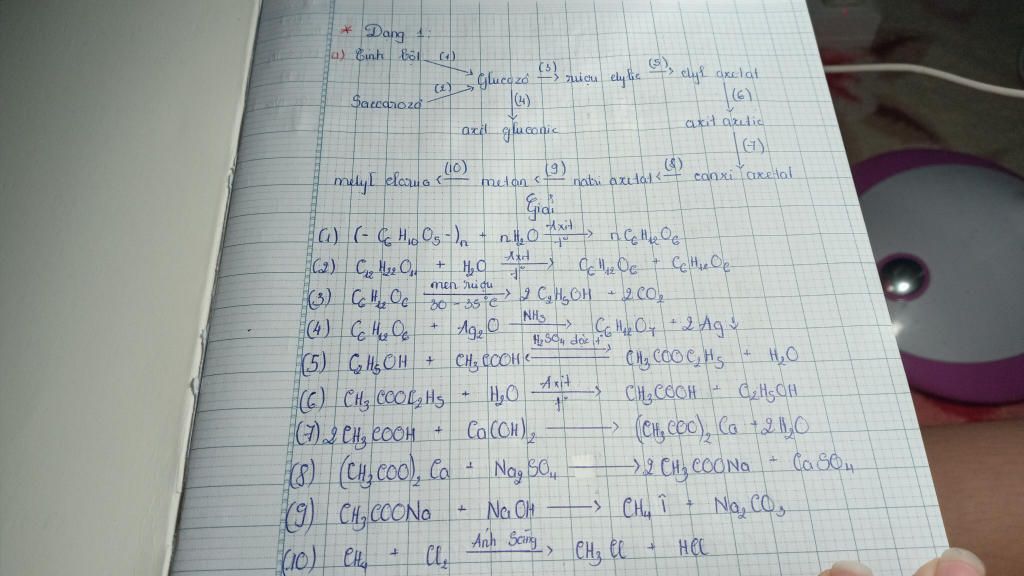 * Dạng 1:
a) Tinh bột (1)
Glucozơ (3) → rượu etylic (5) → etyl axetat
Saccarozơ (2) (4) (6)
axit gluconic axit axetic
(7)
metyl clorua ← (10) metan ← (9) natri axetat ← (8) canxi axetat
Giải
(1) (- C6H10O5 -)n + nH2O Axit t° → nC6H12O6
(2) C12H22O11 + H2O Axit t° → C6H12O6 + C6H12O6
(3) C6H12O6 men rượu 30 - 35°C → 2C2H5OH + 2CO2
(4) C6H12O6 + Ag2O NH3 → C6H12O7 + 2Ag↓
(5) C2H5OH + CH3COOH H2SO4 đặc t° ⇌ CH3COOC2H5 + H2O
(6) CH3COOC2H5 + H2O Axit t° → CH3COOH + C2H5OH
(7) 2CH3COOH + Ca(OH)2 → (CH3COO)2Ca + 2H2O
(8) (CH3COO)2Ca + Na2SO4 → 2CH3COONa + CaSO4
(9) CH3COONa + NaOH → CH4↑ + Na2CO3
(10) CH4 + Cl2 Ánh Sáng → CH3Cl + HCl